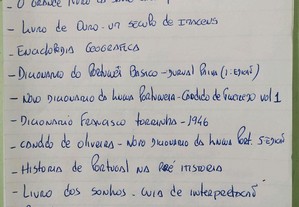 - O GRANDE LIVRO
- LIVRO DE OURO - UM SECULO DE IMAGENS
- ENCICLOPEDIA GEOGRAFICA
- DICIONARIO DO PORTUGUÊS BASICO - (1. EDIÇÃO)
- NOVO DICIONARIO DA LINGUA PORTUGUESA - CANDIDO DE FIGUEIREDO VOL 1
- DICIONARIO FRANCISCO TORRINHA - 1946
- CANDIDO DE OLIVEIRA - NOVO DICIONARIO DA LINGUA PORT. 5 EDIÇÃO
- HISTORIA DE PORTUGAL NA PRÉ HISTORIA
- LIVRO DOS SONHOS - GUIA DE INTERPRETAÇÃO